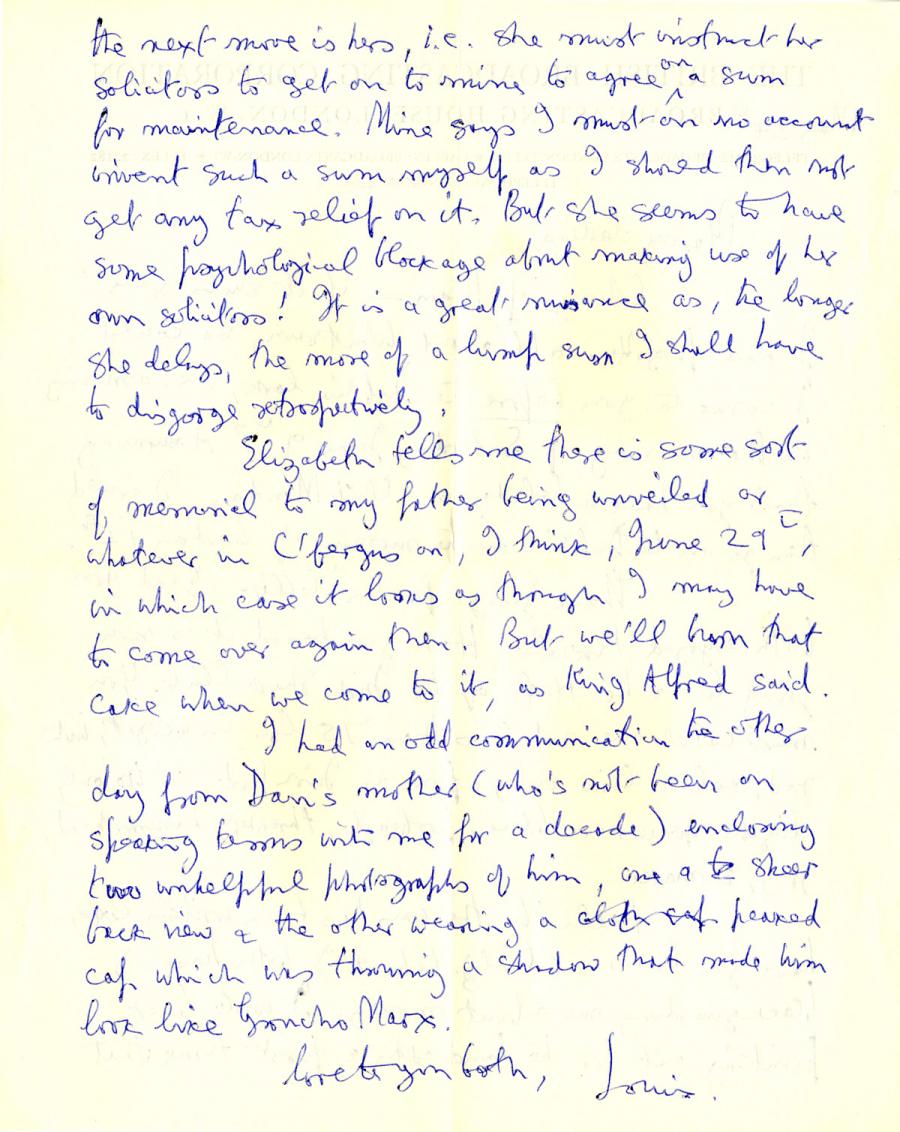 the next move is hers, i.e. she must instruct her
solicitors to get on to mine to agree on a sum
for maintenance. Mine says I must on no account
invent such a sum myself as I should then not
get any tax relief on it. But she seems to have
some psychological blockage about making use of her
own solicitors! It is a great nuisance as, the longer
she delays, the more of a lump sum I shall have
to disgorge retrospectively.
Elizabeth tells me there is some sort
of memorial to my father being unveiled or
whatever in C'fergus on, I think, June 29th,
in which case it looks as though I may have
to come over again then. But we'll burn that
cake when we come to it, as King Alfred said.
I had an odd communication the other
day from Dan's mother (who's not been on
speaking terms with me for a decade) enclosing
two unhelpful photographs of him, one a sheer
back view & the other wearing a cloth cap peaked
cap which was throwing a shadow that made him
look like Groucho Marx.
Love to you both, Louis.